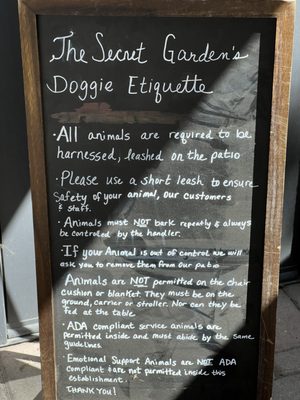 The Secret Garden's
Doggie Etiquette
· All animals are required to be
harnessed, leashed on the patio
· Please use a short leash to ensure
Safety of your animal, our customers
& staff.
· Animals must NOT bark repeatly & always
be controlled by the handler.
· If your Animal is out of control we will
ask you to remove them from our patio
Animals are NOT permitted on the chair
cushion or blanket They must be on the
ground, carrier or stroller. Nor can they be
fed at the table.
· ADA compliant service animals are
permitted inside and must abide by the same
guidelines.
· Emotional Support Animals are NOT ADA
compliant & are not permitted inside this
establishment.
THANK YOU!